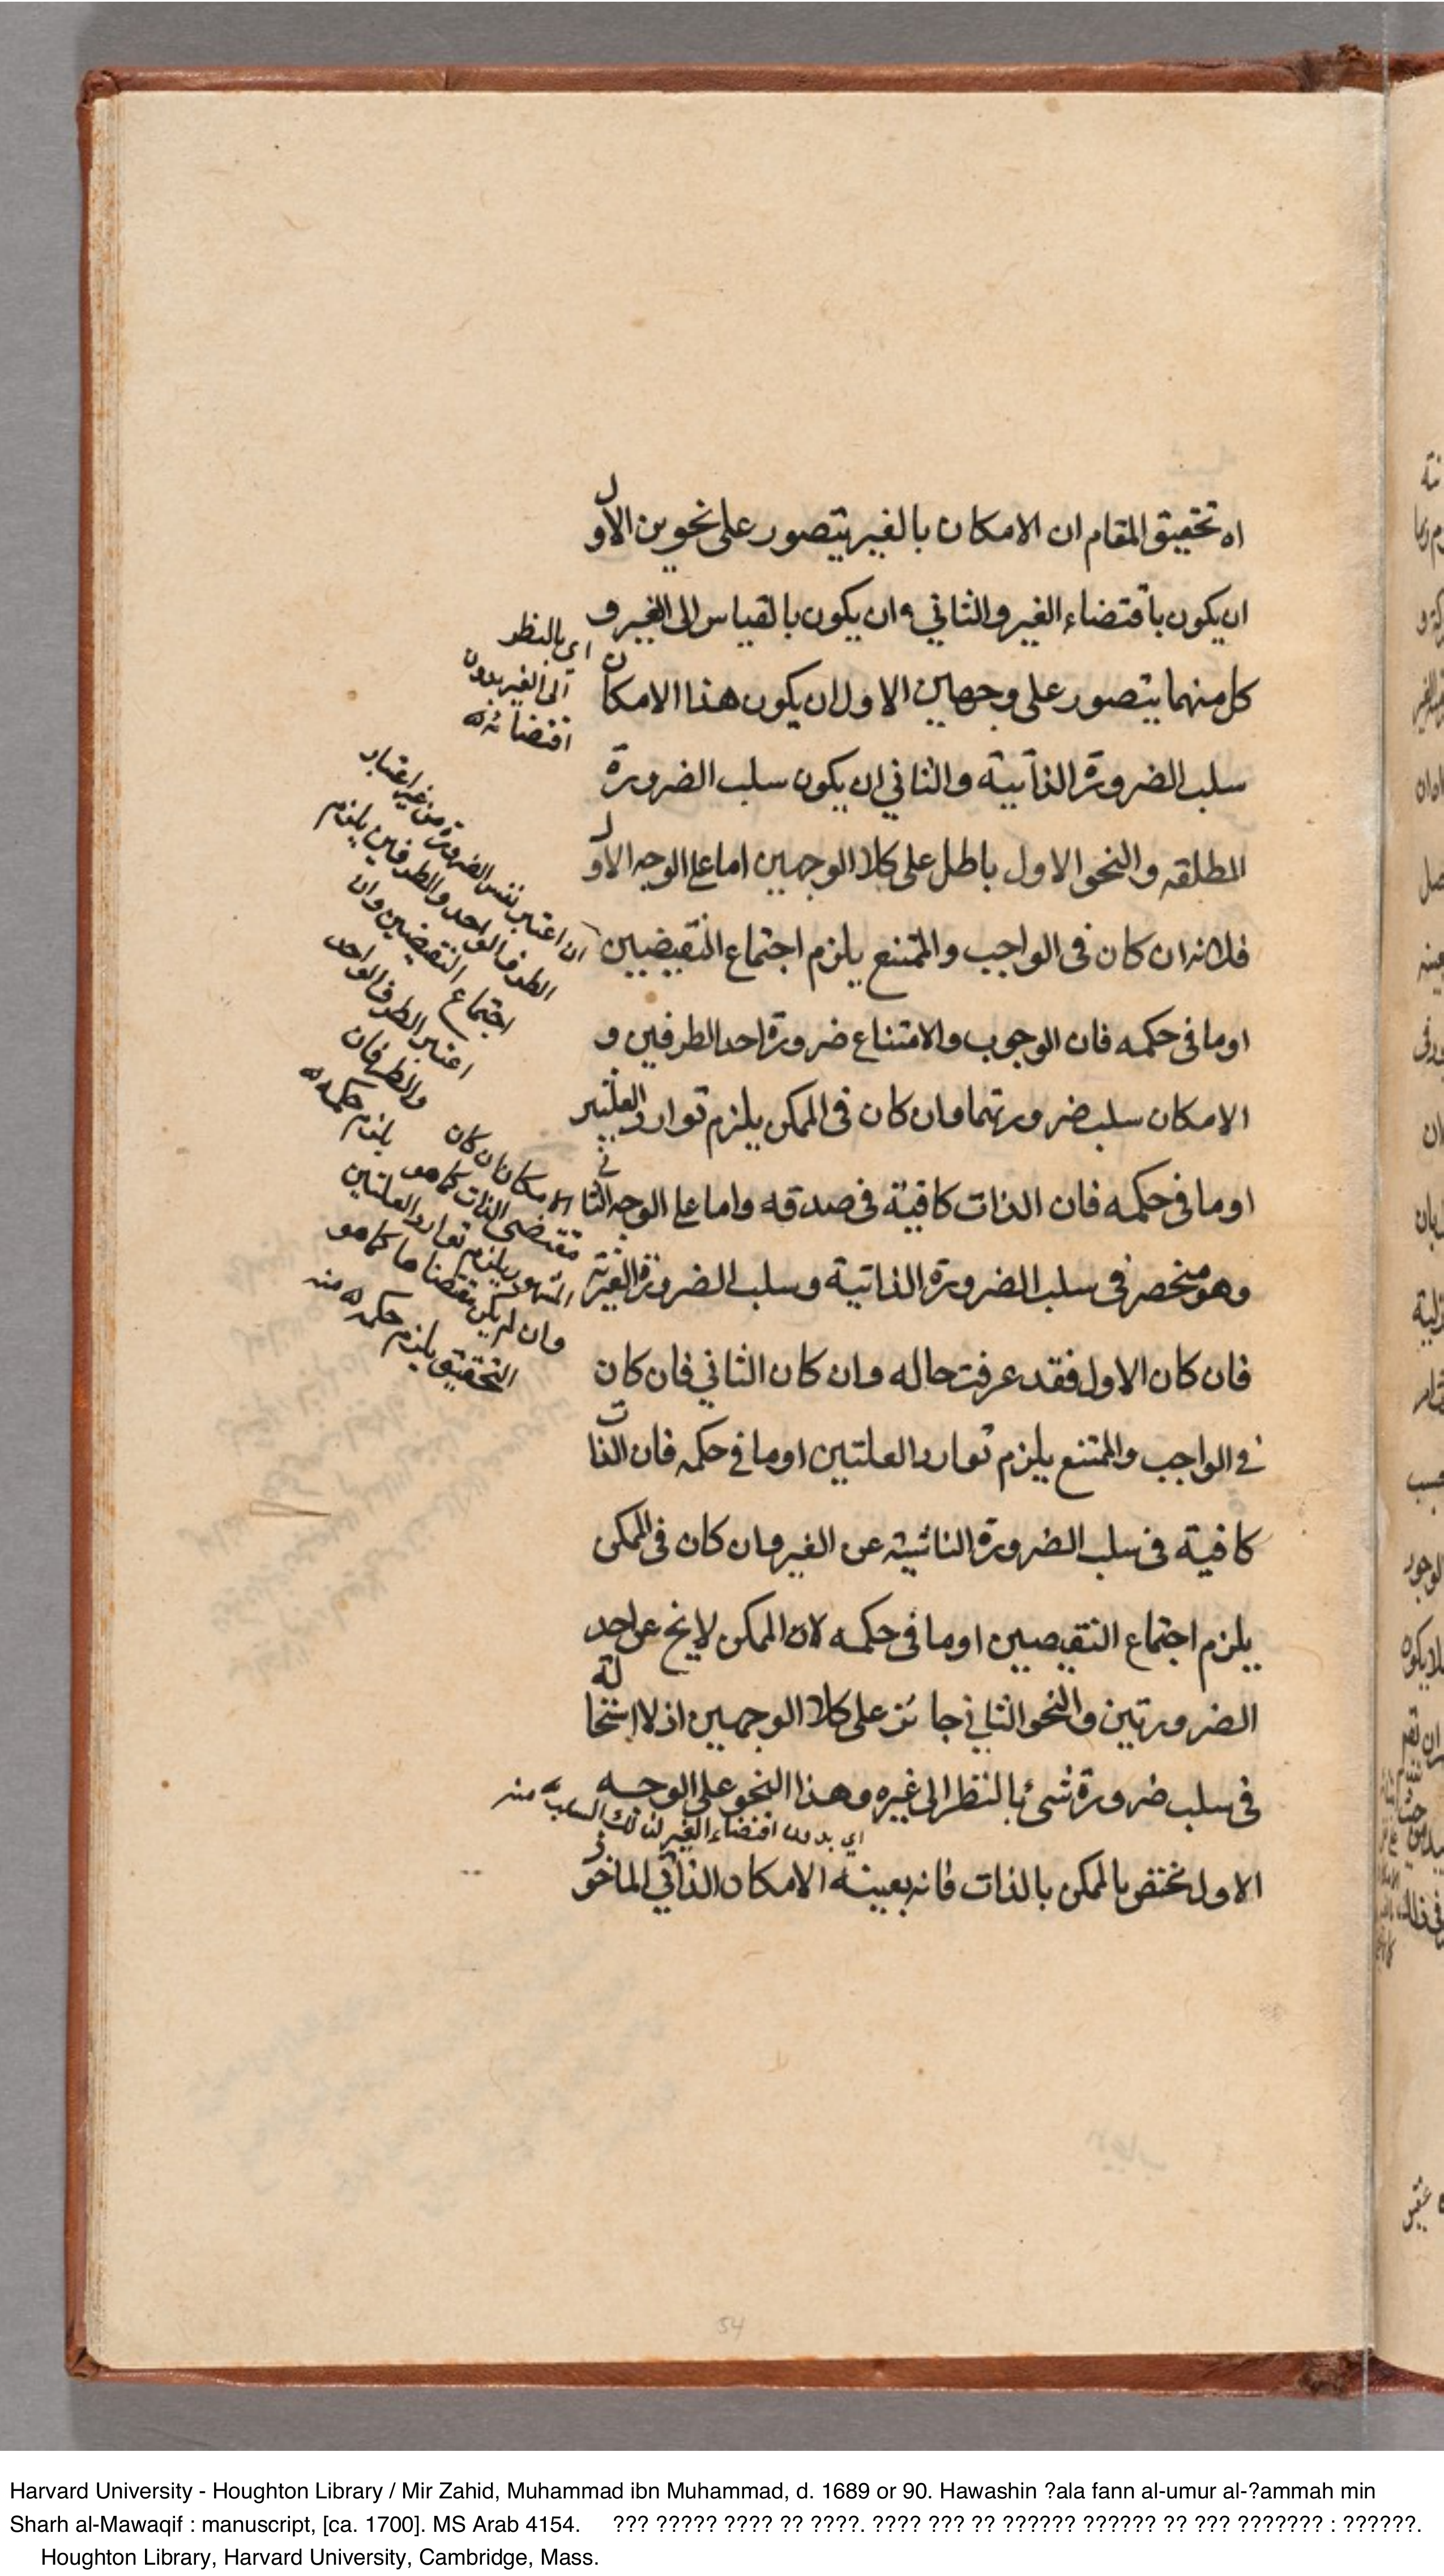 اه تحقيق المقام ان الامكان بالغير يتصور على نحوين الاول
ان يكون باقتضاء الغير والثاني ان يكون بالقياس الى الغير و
كل منهما يتصور على وجهين الاول ان يكون هذا الامكان
سلب الضرورة الذاتية والثاني ان يكون سلب الضرورة
المطلقه والنحو الاول باطل على كلا الوجهين اما على الوجه الاول
فلانه ان كان فى الواجب والممتنع يلزم اجتماع النقيضين
او ما فى حكمه فان الوجوب والامتناع ضرورة احد الطرفين و
الامكان سلب ضرورتهما وان كان فى الممكن يلزم توارد العلتين
او ما فى حكمه فان الذات كافية فى صدقه واما على الوجه الثاني
وهو منحصر فى سلب الضرورة الذاتية وسلب الضرورة الغيرية
فان كان الاول فقد عرفت حاله وان كان الثاني فان كان
في الواجب والممتنع يلزم توارد العلتين او ما في حكمه فان الذات
كافية فى سلب الضرورة الناشية عن الغير وان كان فى الممكن
يلزم اجتماع النقيضين او ما فى حكمه لان الممكن لا يخ عن احد
الضرورتين والنحو الثاني جائز على كلا الوجهين اذ لا استحالة
فى سلب ضرورة شئ بالنظر الى غيره وهذا النحو على الوجه
اي بدون اقتضاء الغير لذلك السلب منه
الاول مختص بالممكن بالذات فانه بعينه الامكان الذاتي الماخوذ
اي بالنظر
الى الغير بدون
اقتضائه
ان اعتبر نفس الضرورة من غير اعتبار
الطرف الواحد والطرفين يلزم
اجتماع النقيضين وان
اعتبر الطرف الواحد
والطرفان
يلزم حكمه
الامكان ان كان
مقتضى الذات كما هو
المشهور يلزم توارد العلتين
وان لم يكن مقتضاها كما هو
التحقيق يلزم حكمه منه
54
Harvard University - Houghton Library / Mir Zahid, Muhammad ibn Muhammad, d. 1689 or 90. Hawashin ?ala fann al-umur al-?ammah min
Sharh al-Mawaqif : manuscript, [ca. 1700]. MS Arab 4154. ??? ????? ???? ?? ????. ???? ??? ?? ?????? ?????? ?? ??? ??????? : ??????.
Houghton Library, Harvard University, Cambridge, Mass.